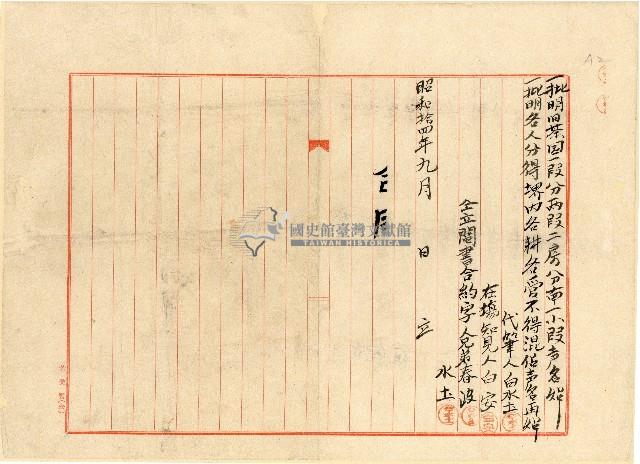 一批明旧茶园一段分为两段二房分南一小段声名炤
一批明各人分得界内各耕各管不得混佔声名再炤
代筆人白水土
在塲知見人白安
仝立鬮書合約字人兄弟春波
水土
昭和拾四年九月 日 立
國史館臺灣文獻館
TAIWAN HISTORICA
A2